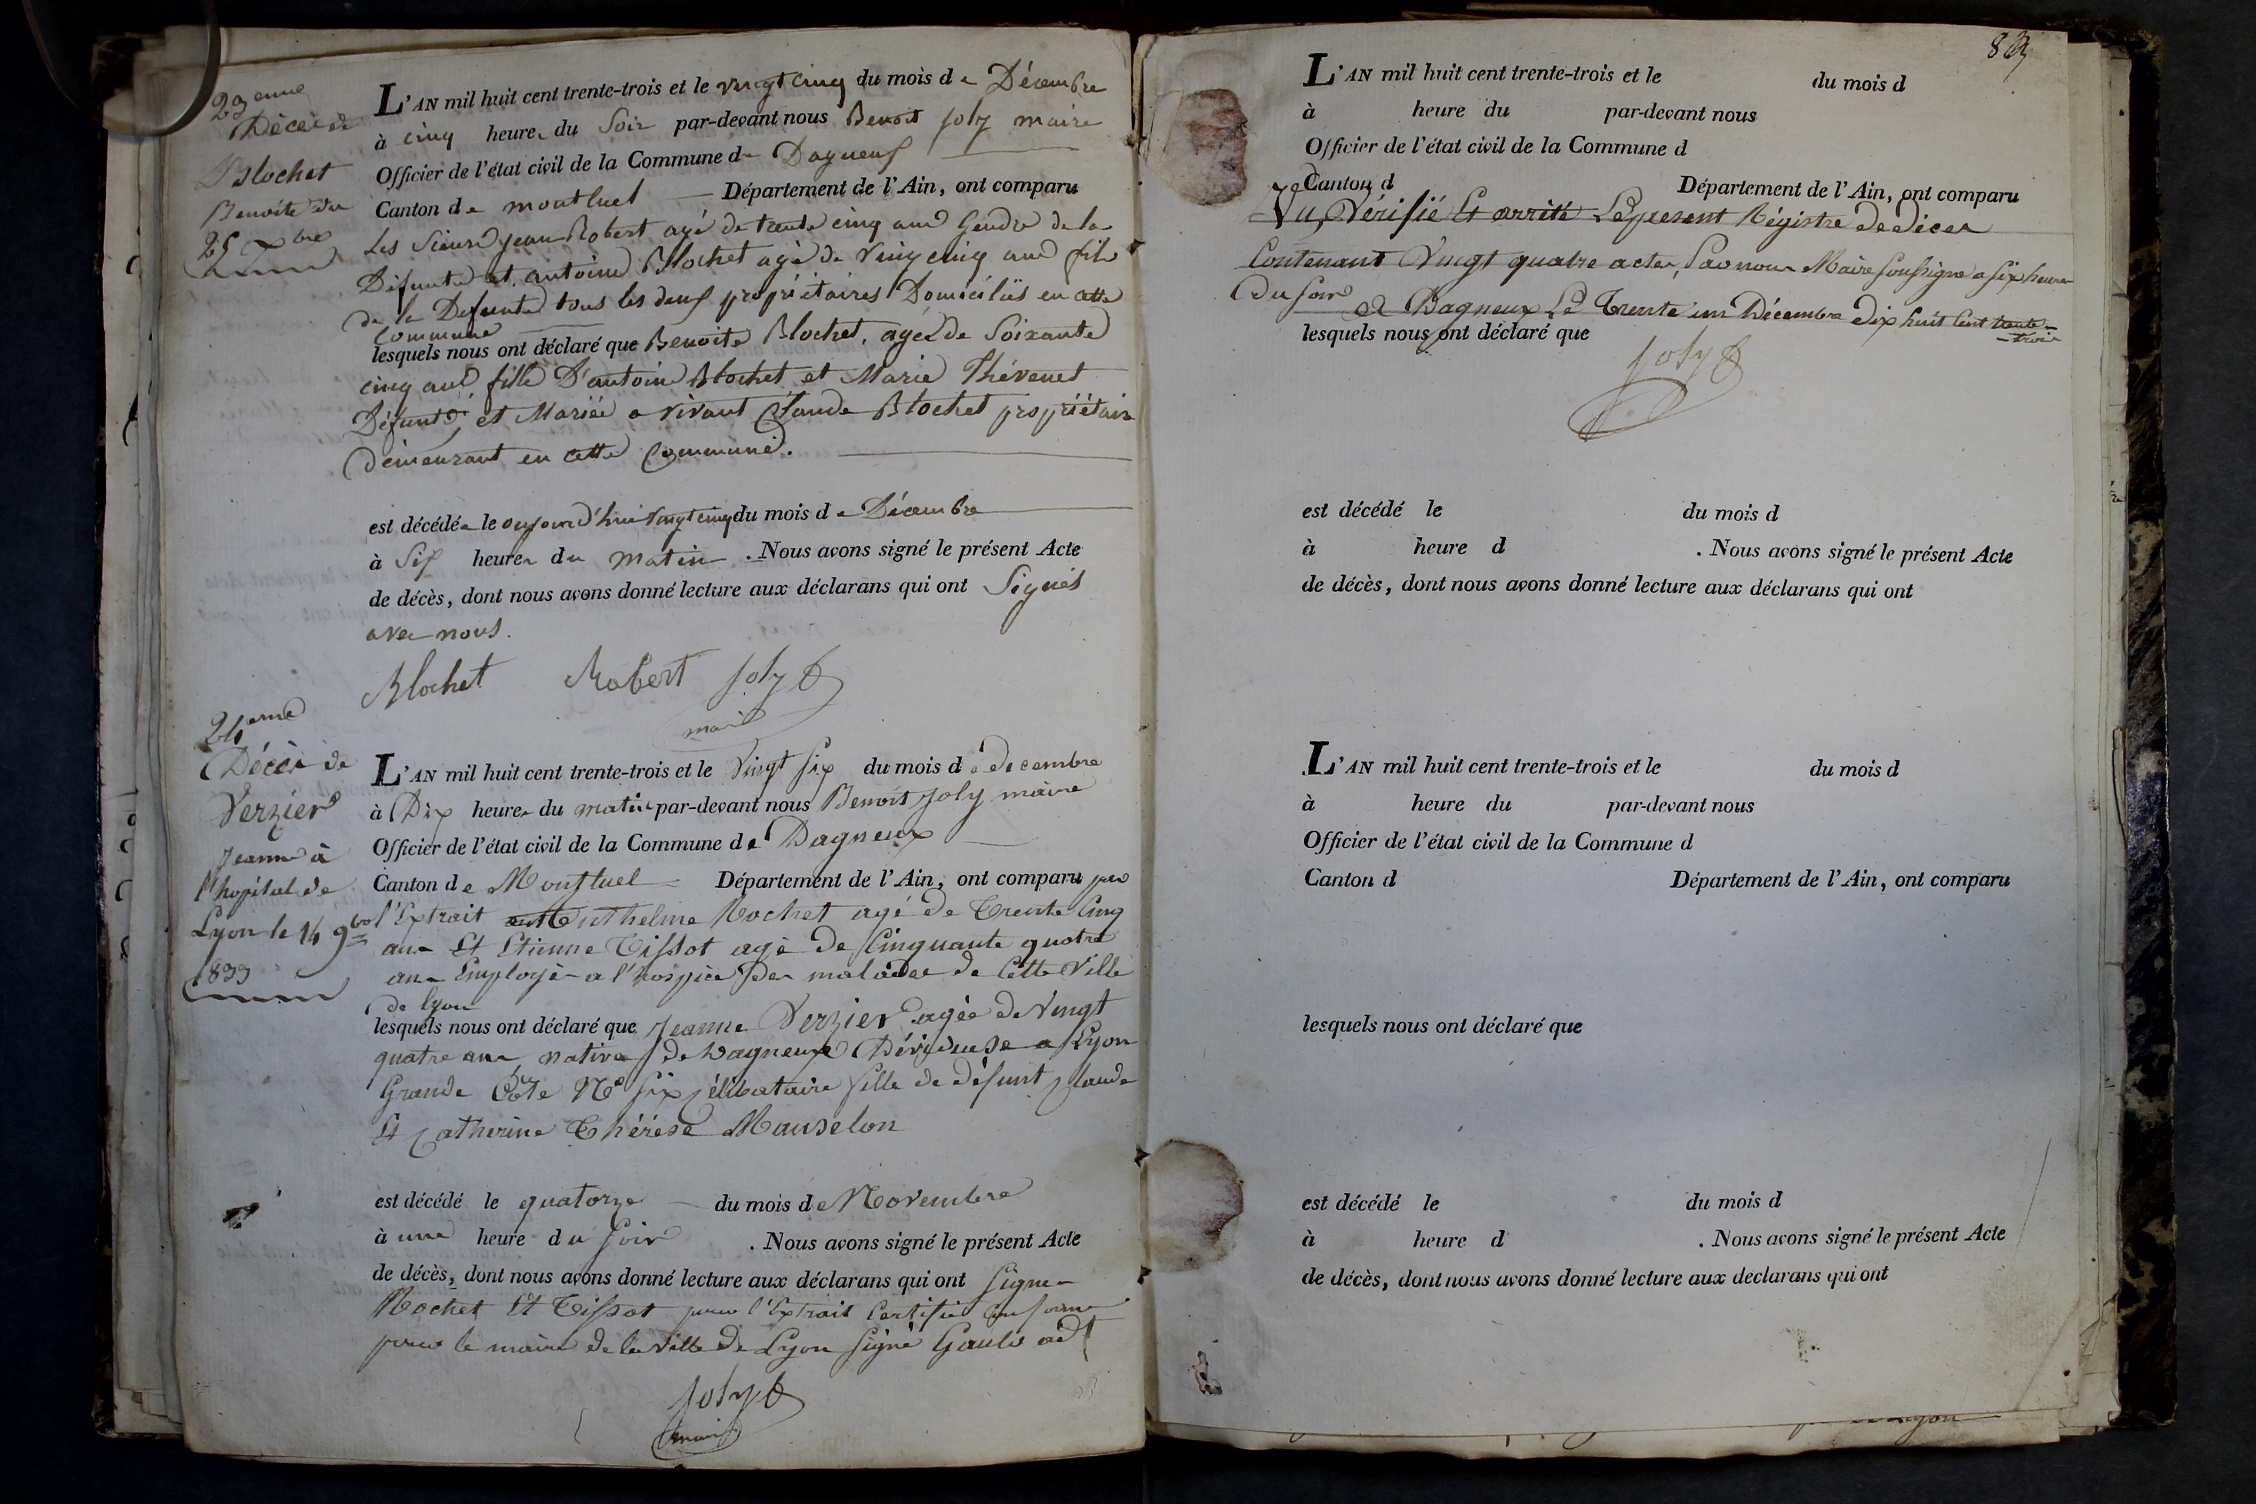 23eme
Décès de
Blochet
Benoite du
25 Xbre
L'AN mil huit cent trente-trois et le vingt cinq du mois de Décembre
à cinq heures du Soir par-devant nous Benoit Joly maire
Officier de l'état civil de la Commune de Dagneux
Canton de montluel Département de l'Ain, ont comparu
Les Sieurs jean Robert agé de trente cinq ans Gendre de la
Défunte et antoine Blochet agé de Vingt cinq ans fils
de la Defunte tous les deux propriétaires Domiciliés en cette
Commune
lesquels nous ont déclaré que Benoite Blochet, agée de Soixante
cinq ans fille D'antoine Blochet et Marie Thévenet
Défunts, et Mariée a vivant Claude Blochet propriétaire
demeurant en cette Commune.
est décédée le aujourd'hui vingt cinq du mois de Décembre
à Six heures du matin. Nous avons signé le présent Acte
de décès, dont nous avons donné lecture aux déclarans qui ont Signés
avec nous.
Blochet Robert Joly
maire
24eme
Décès de
Verzier
Jeanne à
l'hopital de
Lyon le 14 9bre
1833
L'AN mil huit cent trente-trois et le Vingt Six du mois de decembre
à Dix heures du matin par-devant nous Benoit Joly maire
Officier de l'état civil de la Commune de Dagneux
Canton de Montluel Département de l'Ain, ont comparu par
l'Extrait Anthelme Rochet agé de Trente Cinq
ans Et Etienne Tissot agé de Cinquante quatre
ans Employés a l'hospice des malades de Cette Ville
de Lyon
lesquels nous ont déclaré que Jeanne Verzier agée de Vingt
quatre ans native de Dagneux Dévideuse a Lyon
Grande Côte No Six célibataire fille de défunt Claude
Et Catherine Thérèse Mauselon
est décédé le quatorze du mois de Novembre
à une heure du Soir. Nous avons signé le présent Acte
de décès, dont nous avons donné lecture aux déclarans qui ont Signes
Rochet Et Tissot pour l'Extrait Certifié Conforme
pour le maire de la Ville de Lyon Signé
Joly
maire
L'AN mil huit cent trente-trois et le du mois d
à heure du par-devant nous
Officier de l'état civil de la Commune d
Canton d Département de l'Ain, ont comparu
Vu, Vérifié Et arrêté Le present Régistre de décès
Contenant Vingt quatre actes, Par nous Maire Soussigné a Six heures
du Soir
A Dagneux Le Trente un Décembre dix huit Cent trente
trois
lesquels nous ont déclaré que
Joly
est décédé le du mois d
à heure d . Nous avons signé le présent Acte
de décès, dont nous avons donné lecture aux déclarans qui ont
L'AN mil huit cent trente-trois et le du mois d
à heure du par-devant nous
Officier de l'état civil de la Commune d
Canton d Département de l'Ain, ont comparu
lesquels nous ont déclaré que
est décédé le du mois d
à heure d . Nous avons signé le présent Acte
de décès, dont nous avons donné lecture aux declarans qui ont